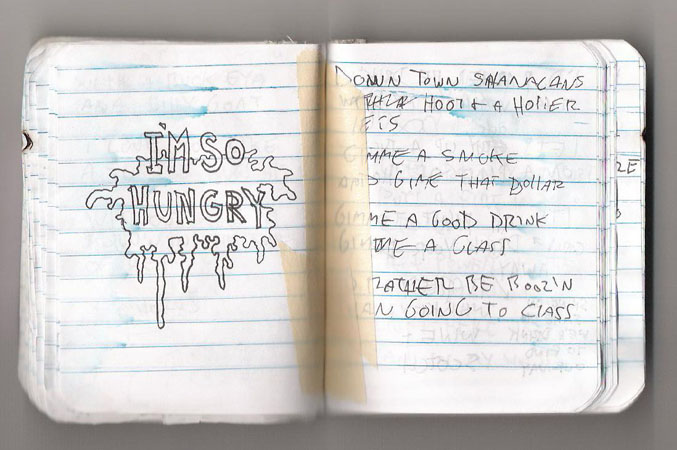 I'M SO
HUNGRY
DOWN TOWN SHANAGANS
HOOT & A HOLLER
GIMME A SMOKE
AND GIME THAT DOLLAR
GIMME A GOOD DRINK
GIMME A GLASS
RATHER BE BOOZ'N
THAN GOING TO CLASS